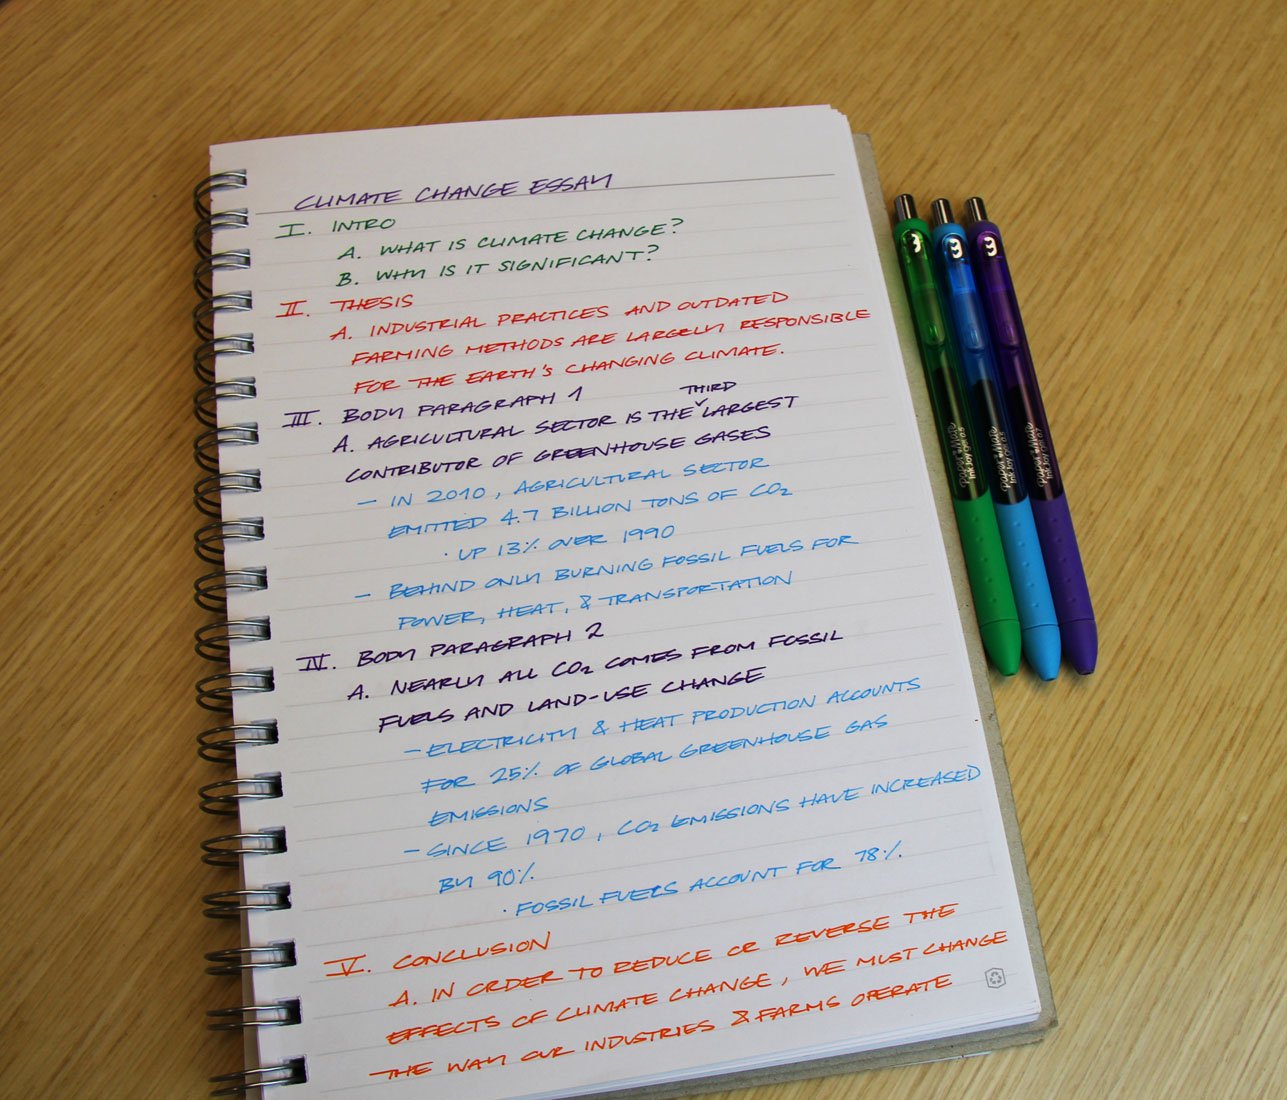 CLIMATE CHANGE ESSAY
I. INTRO
A. WHAT IS CLIMATE CHANGE?
B. WHY IS IT SIGNIFICANT?
II. THESIS
A. INDUSTRIAL PRACTICES AND OUTDATED
FARMING METHODS ARE LARGELY RESPONSIBLE
FOR THE EARTH'S CHANGING CLIMATE.
III. BODY PARAGRAPH 1
A. AGRICULTURAL SECTOR IS THE THIRD LARGEST
CONTRIBUTOR OF GREENHOUSE GASES
- IN 2010, AGRICULTURAL SECTOR
EMITTED 4.7 BILLION TONS OF CO2
· UP 13% OVER 1990
- BEHIND ONLY BURNING FOSSIL FUELS FOR
POWER, HEAT, & TRANSPORTATION
IV. BODY PARAGRAPH 2
A. NEARLY ALL CO2 COMES FROM FOSSIL
FUELS AND LAND-USE CHANGE
- ELECTRICITY & HEAT PRODUCTION ACCOUNTS
FOR 25% OF GLOBAL GREENHOUSE GAS
EMISSIONS
- SINCE 1970, CO2 EMISSIONS HAVE INCREASED
BY 90%
· FOSSIL FUELS ACCOUNT FOR 78%.
V. CONCLUSION
A. IN ORDER TO REDUCE OR REVERSE THE
EFFECTS OF CLIMATE CHANGE, WE MUST CHANGE
THE WAY OUR INDUSTRIES & FARMS OPERATE
Paper Mate
InkJoy Gel 0.5
Paper Mate
InkJoy Gel 0.5
Paper Mate
InkJoy Gel 0.7